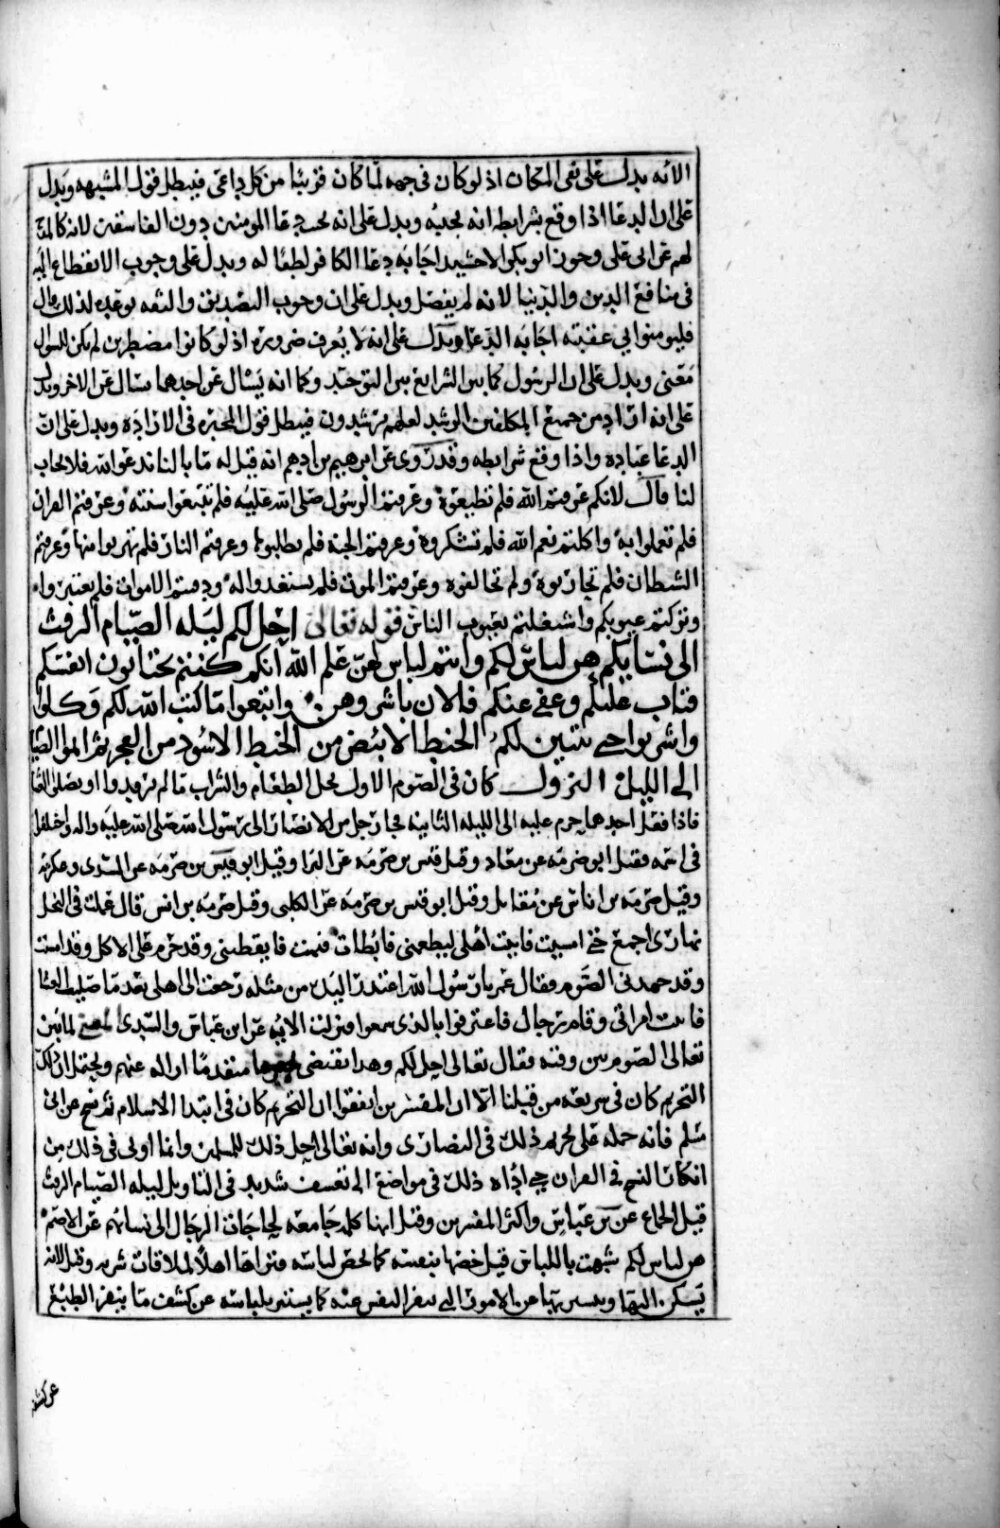 الآيه يدل على نفي المكان اذ لو كان في جهه لما كان قريبا من كل داعي فيبطل قول المشبهه ويدل
على ان الدعا اذا وقع بشرايطه انه يجيبه ويدل على انه يجب دعا المومنين دون الفاسقين لانه كالمدح
لهم عن ابي علي وجوز ابو بكر الاخشيد اجابه دعا الكافر لطفا له ويدل على وجوب الانقطاع اليه
في منافع الدين والدنيا لانه لم يفصل ويدل على ان وجوب التصديق والثقه بوعده لذلك قال
فليومنوا بي عقيب اجابه الدعا ويدل على انه لا يعرف ضروره اذ لو كانوا مضطرين لم يكن للسوال
معنى ويدل على ان الرسول كما بين الشرايع بين التوحيد وكما انه يسال عن احدهما يسال عن الاخر ويدل
على انه اراد من جميع المكلفين الرشد لعلهم يرشدون فيبطل قول المجبره في الاراده ويدل على ان
الدعا عباده واذا وقع شرابطه وقد روى عن ابرهيم بن ادهم انه قيل له ما بالنا ندعو الله فلا يجاب
لنا قال لانكم عرفتم الله فلم تطيعوه وعرفتم الرسول صلى الله عليه فلم تتبعوا سنته وعرفتم القران
فلم تعملوا به واكلتم نعم الله فلم تشكروه وعرفتم الجنة فلم تطلبوها وعرفتم النار فلم تهربوا منها وعرفتم
الشيطان فلم تحاربوه ولم تخالفوه وعرفتم الموت فلم تستعدوا له ودفنتم الاموات فلم تعتبروا
وتركتم عيوبكم واشتغلتم بعيوب الناس قوله تعالى احل لكم ليله الصيام الرفث
الى نسايكم هن لباس لكم وانتم لباس لهن علم الله انكم كنتم تختانون انفسكم
فتاب عليكم وعفى عنكم فالان باشروهن وابتغوا ما كتب الله لكم وكلوا
واشربوا حتى يتبين لكم الخيط الابيض من الخيط الاسود من الفجر ثم اتموا الصيا
الى الليل النزول كان في الصوم الاول يحل الطعام والشراب ما لم يرقدوا او يصلى العشا
فاذا فعل احدها حرم عليه الى الليله الثانيه فجا رجل من الانصار الى رسول الله صلى الله عليه واله واختلفوا
في اسمه فقيل ابو صرمه عن معاذ وقيل قيس بن صرمه عن البرا وقيل ابو قيس بن صرمه عن السدي وعكرمه
وقيل صرمه بن اناس عن مقاتل وقيل ابو قيس بن صرمه عن الكلبي وقيل صرمه بن انس قال عملت في النخل
نهاري اجمع حتى امسيت فاتيت اهلي ليطعمني فابطات فنمت فايقظتني وقد حرم علي الاكل وقد امسيت
وقد جهدني الصوم فقال عمر يا رسول الله اعتذر اليك من مثله رجعت الى اهلي بعد ما صليت العشا
فاتيت امراتي وقام رجال فاعترفوا بالذي سمعوا فنزلت الايه عن ابن عباس والسدي المعنى لما بين
تعالى الصوم بين وقته فقال تعالى احل لكم وهذا يقتضي متقدما ازاله عنهم ويحتمل ان ذلك
التحريم كان في شريعه من قبلنا الا ان المفسرين اتفقوا ان التحريم كان في ابتدا الاسلام ثم نسخ عن ابي
مسلم فانه حمله على تحريم ذلك في النصارى وانه تعالى احل ذلك للمسلمين وانما اوتي في ذلك من
انكار النسخ في القران حتى اداه ذلك في مواضع الى تعسف شديد في التاويل ليله الصيام الرفث
قيل الجماع عن بن عباس واكثر المفسرين وقيل انها كلمه جامعه لحاجات الرجال الى نسائهم عن الاصم
هن لباس لكم شبهت باللباس قيل خصها بنفسه كما يخص لباسه ويراها اهلا لملاقات شربه وقيل لانه
يسكن اليها ويستر بها عن الامور التي تنفر النفس عنه كما يستتر بلباسه عن كشف ما ينفر الطبع
عن كشفه